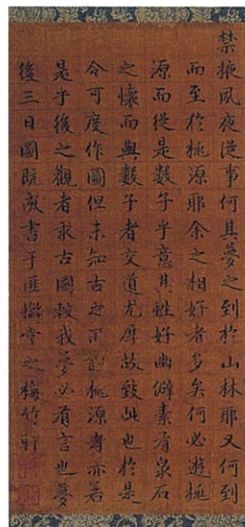 禁掖夙夜從事何其夢之到於山林耶又何到
而至於桃源耶余之相好者多矣何必遊桃
源而從是數子乎意其性好幽僻素有泉石
之懷而與數子者交道尤厚故致此也於是
令可度作圖但未知古之所謂桃源者亦若
是乎後之觀者求古圖較我夢必有言也夢
後三日圖旣成書于匪懈堂之梅竹軒